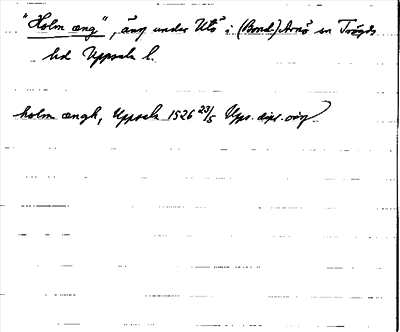 "Holm æng", äng under Utö i (Bond)Arnö sn Trögds
hd Uppsala l.
holm ængh, Uppsala 1526 23/5 Ups. dipl. orig.